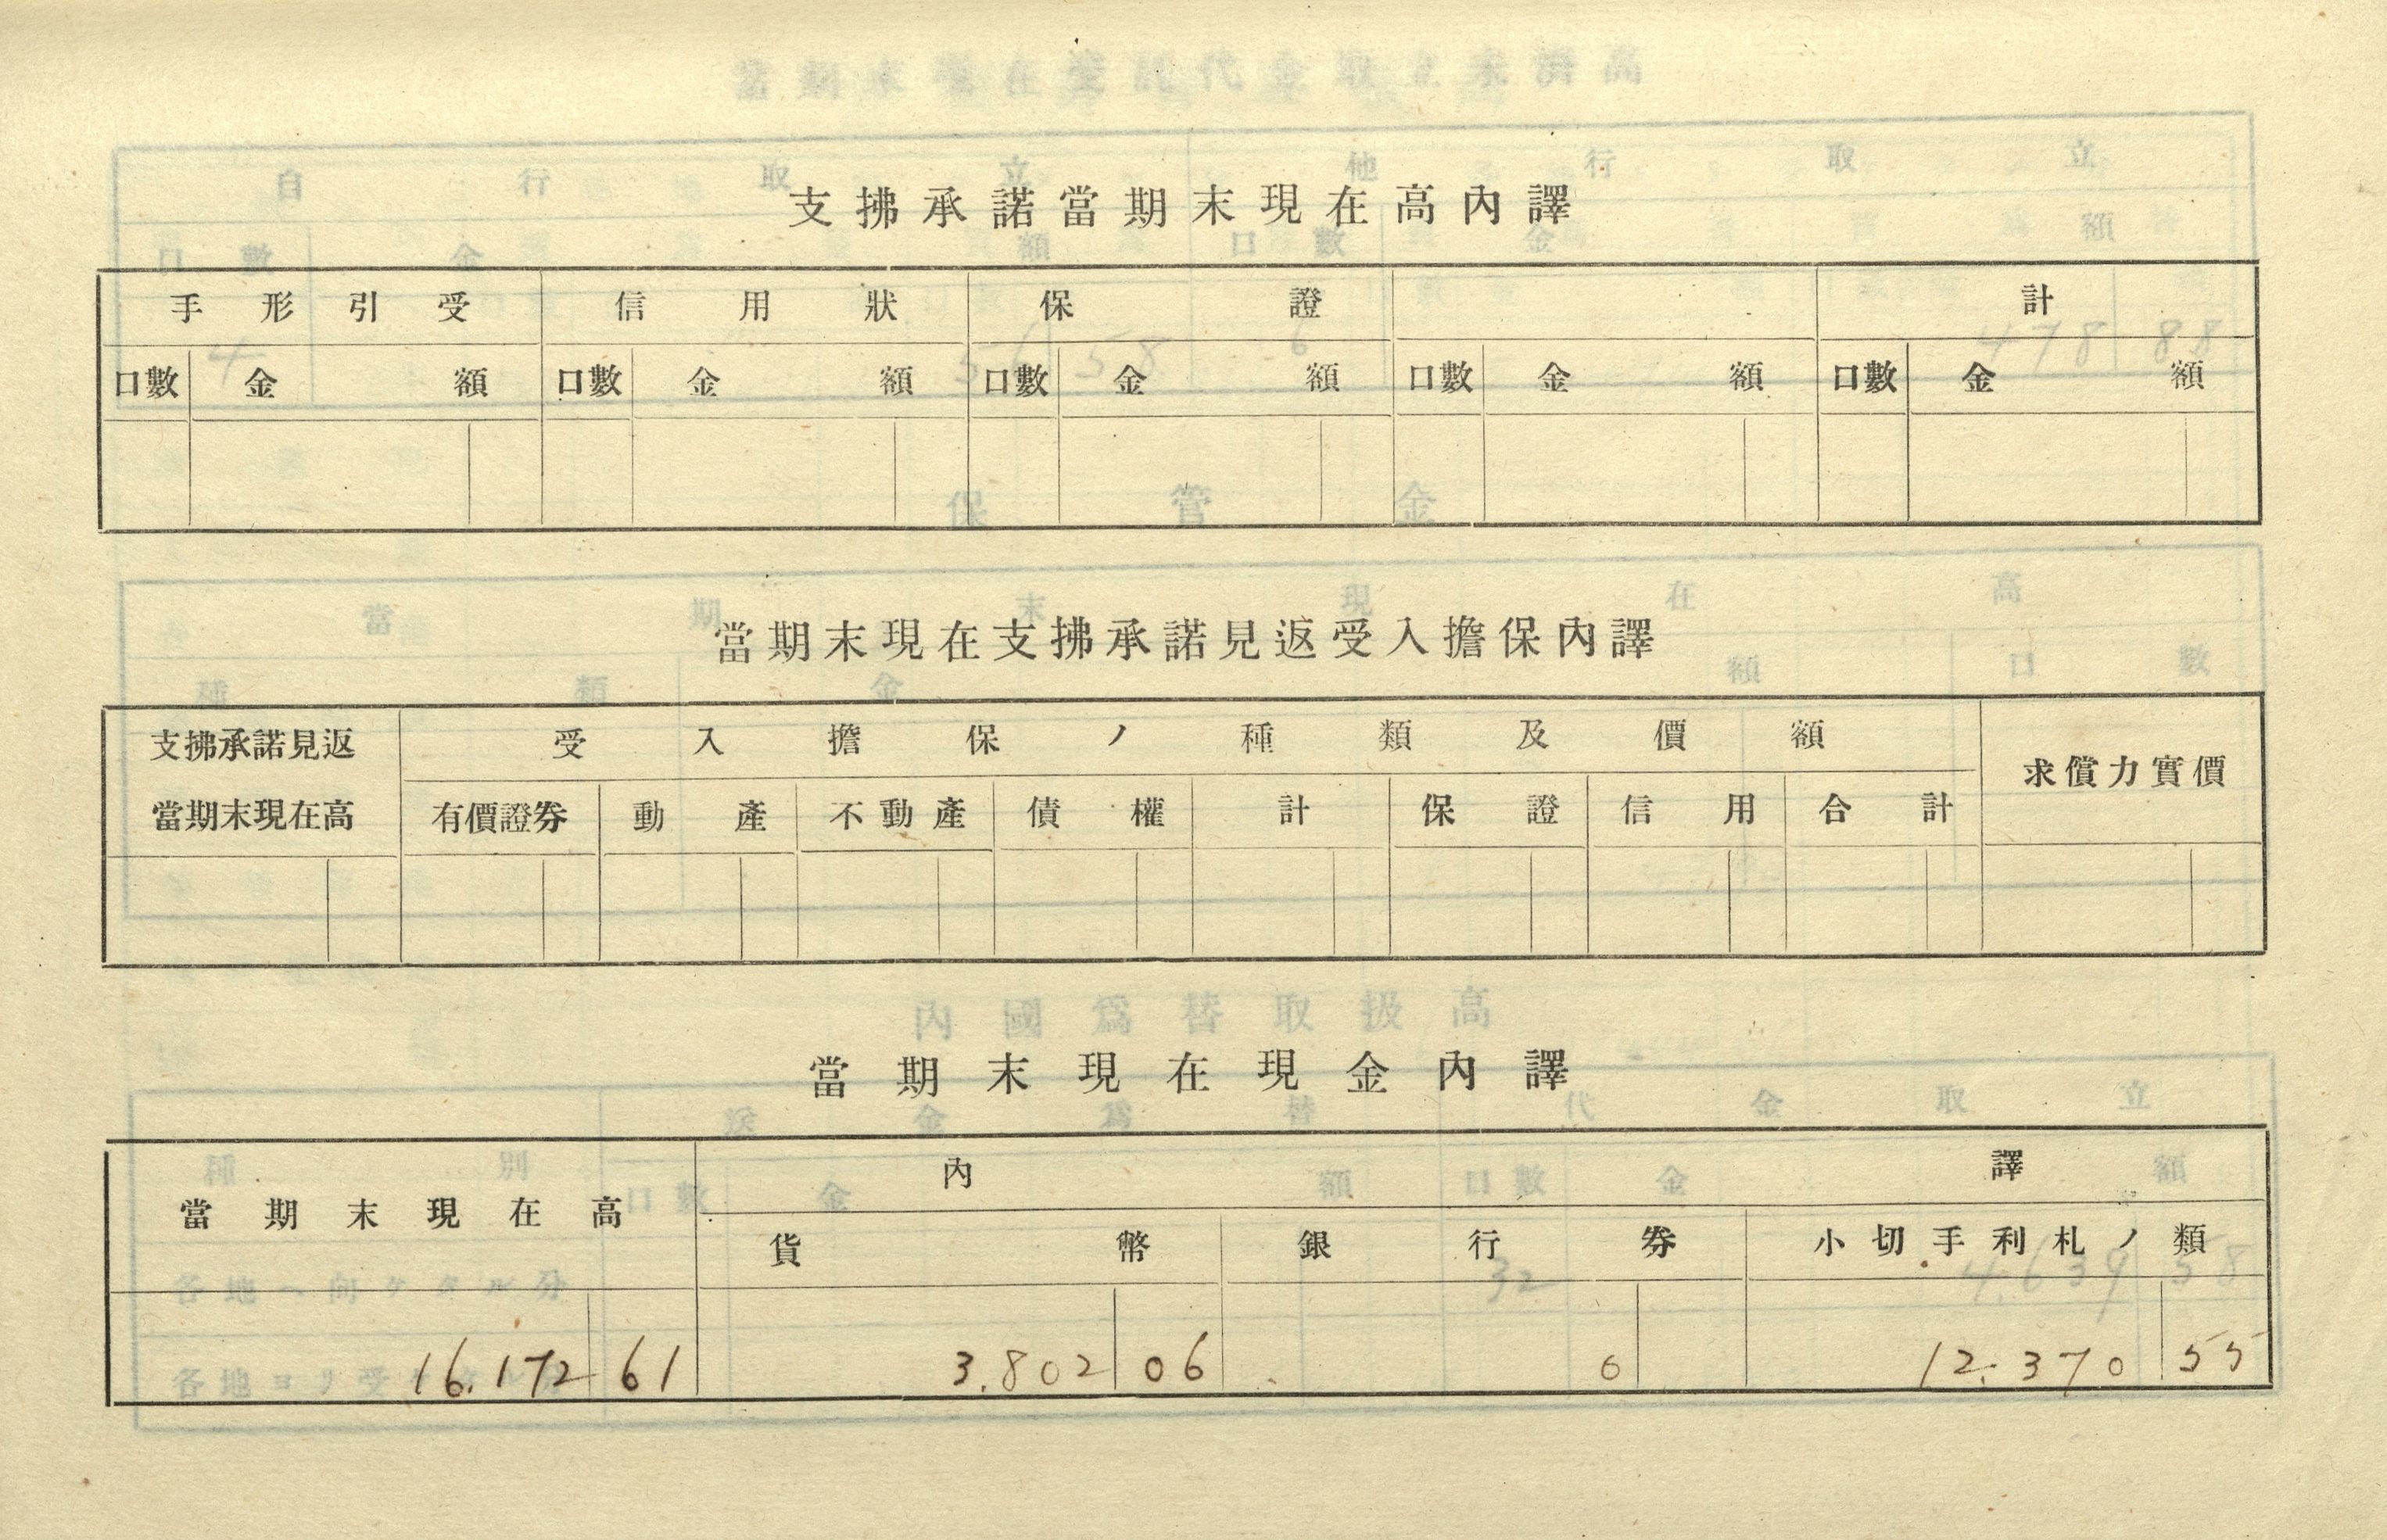 支拂承諾當期末現在高內譯
手形引受 信用狀 保證 計
口數 金額 口數 金額 口數 金額 口數 金額 口數 金額
當期末現在支拂承諾見返受入擔保內譯
支拂承諾見返 受入擔保ノ種類及價額 求償力實價
當期末現在高 有價證券 動產 不動產 債權 計 保證 信用 合計
當期末現在現金內譯
當期末現在高 內譯
貨幣 銀行券 小切手利札ノ類
16.172 61 3.802 06 0 12.370 55